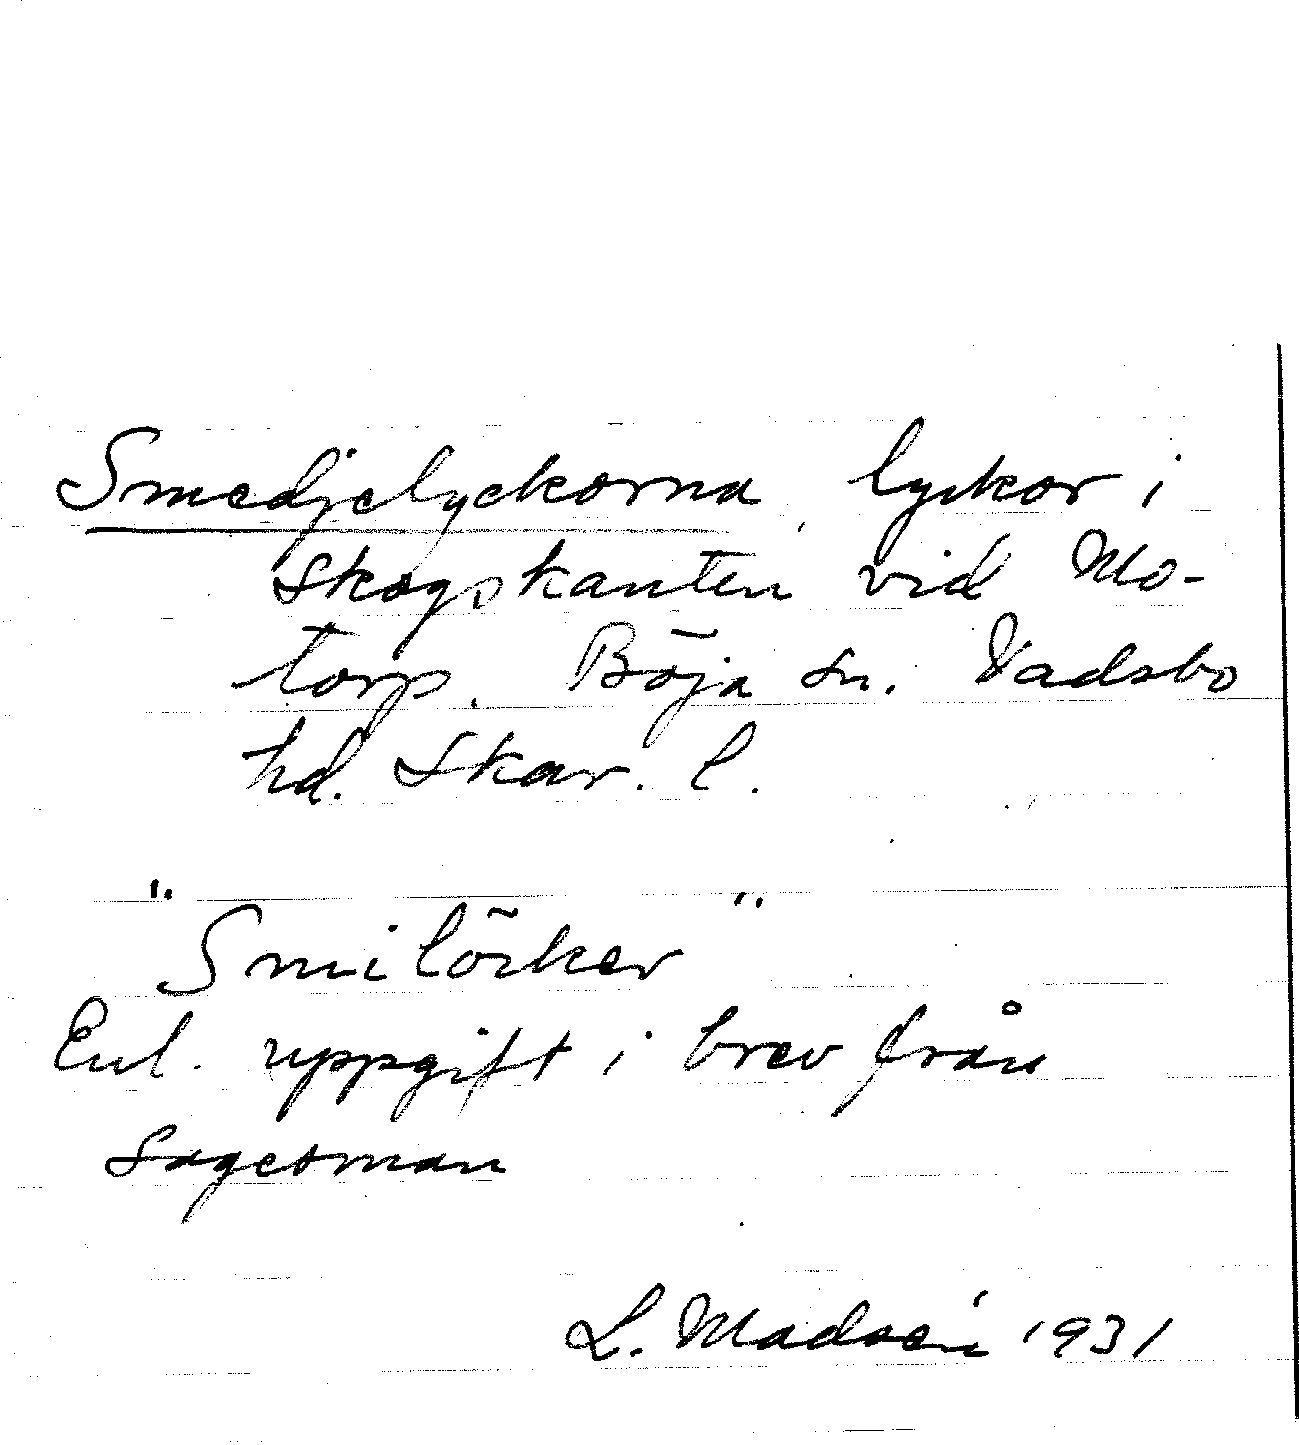 Smedjelyckorna, lyckor i
skogskanten vid Mo-
torp. Böja sn. Vadsbo
hd. Skar. l.
"Smilöcker"
Enl. uppgift i brev från
sagesman
L. Madsén 1931